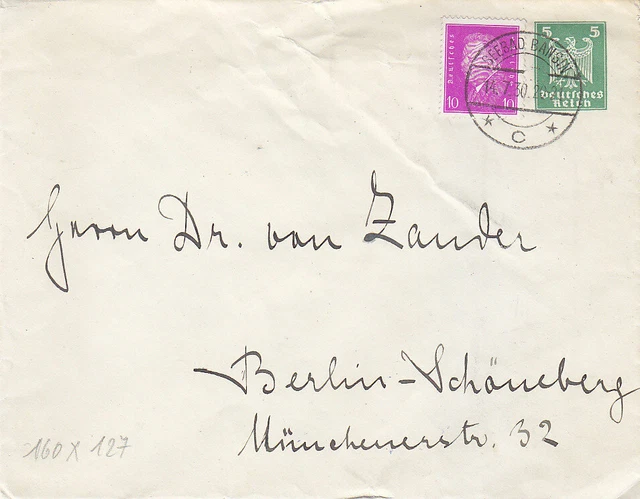 Deutsches
10 10
5 5
Deutsches
Reich
SEEBAD BANSIN
14.7.30.
* C *
Herrn Dr. von Zander
Berlin-Schöneberg
Münchenerstr. 32
160 x 127